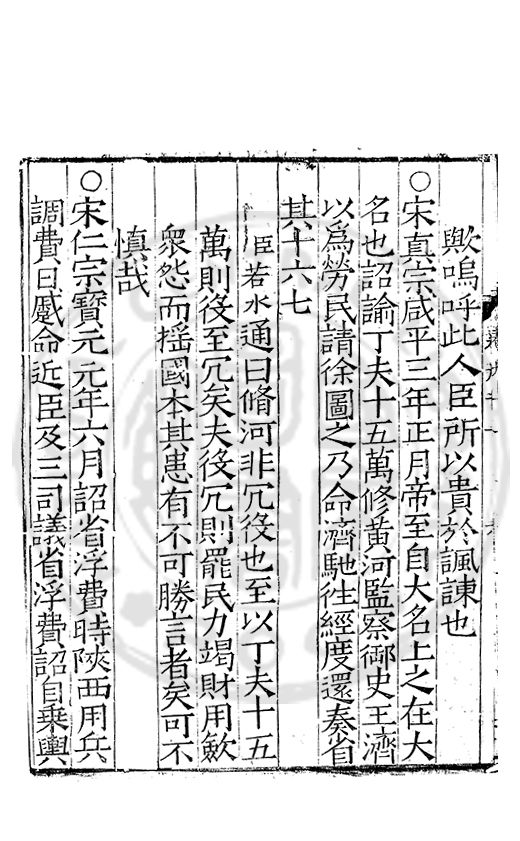 歟嗚呼此人臣所以貴於諷諫也
○宋真宗咸平三年正月帝至自大名上之在大
名也詔諭丁夫十五萬修黃河監察御史王濟
以為勞民請徐圖之乃命濟馳往經度還奏省
其十六七
臣若水通曰脩河非冗役也至以丁夫十五
萬則役至冗矣夫役冗則罷民力竭財用歛
衆怨而揺國本其患有不可勝言者矣可不
慎哉
○宋仁宗寶元元年六月詔省浮費時陝西用兵
調費日蹙命近臣及三司議省浮費詔自乗輿